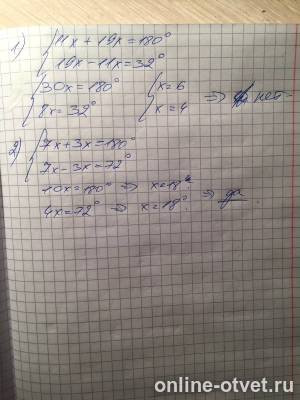 1) { 11x + 19x = 180°
19x - 11x = 32°
{ 30x = 180° { x = 6
8x = 32° { x = 4 ⇒ нет
2) { 7x + 3x = 180°
7x - 3x = 72°
10x = 180° ⇒ x = 18°
4x = 72° ⇒ x = 18° ⇒ да
online-otvet.ru